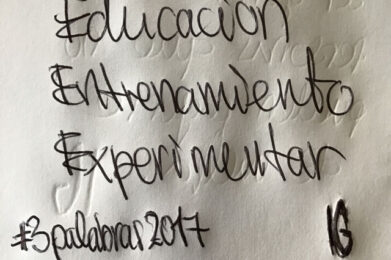 Educación
Entrenamiento
Experimentar
#3palabras2017 IG